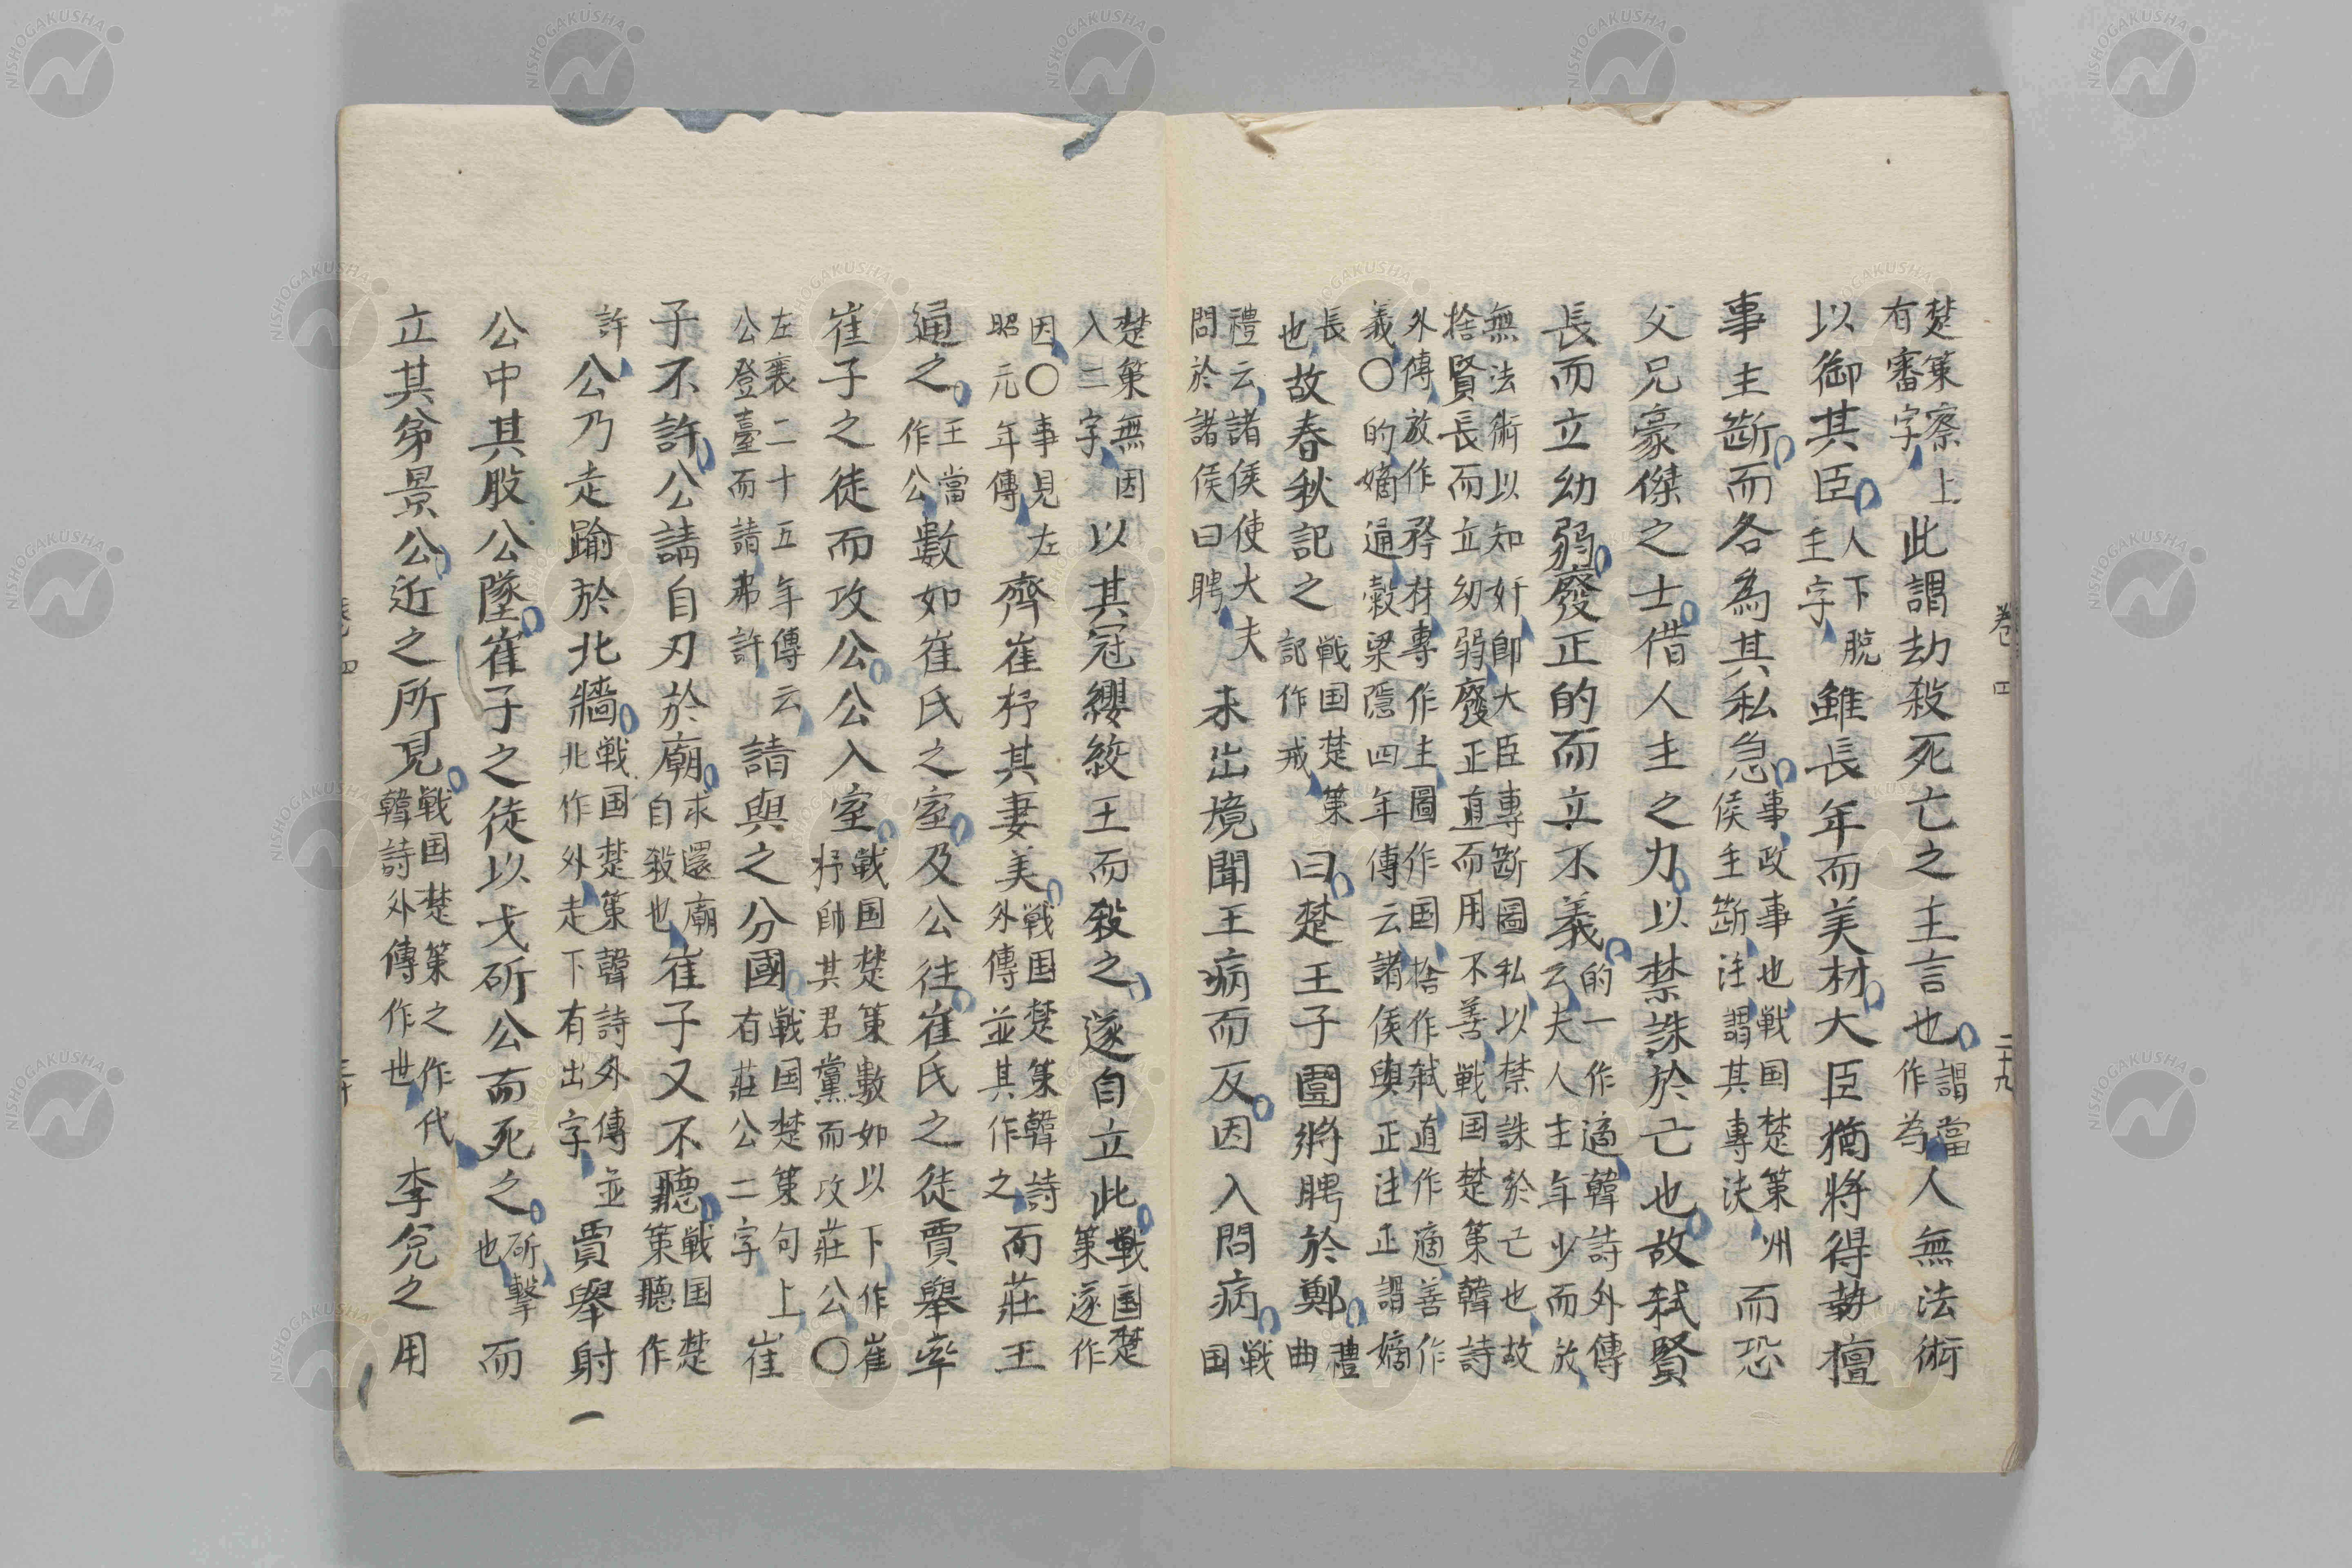 卷四 二十九
楚策察上有審字此謂劫殺死亡之主言也謂當作為人無法術
以御其臣人下脫主字雖長年而美材大臣猶將得勢擅
事主斷而各為其私急事政事也戦国楚策州侯主斷注謂其專決而恐
父兄豪傑之士借人主之力以禁誅於亡也故弒賢
長而立幼弱廢正的而立不義的一作適韓詩外傳云夫人主年少而放
無法術以知奸卽大臣專斷圖私以禁誅於亡也故捨賢長而立幼弱廢正直而用不善戦国楚策韓詩
外傳放作矜材專作主圖作国捨作弒直作適善作義〇的嫡通穀梁隱四年傳云諸侯與正注正謂嫡
長也故春秋記之戦国楚策記作戒曰楚王子圍將聘於鄭禮曲
禮云諸侯使大夫問於諸侯曰聘未出境聞王病而反因入問病戦国
楚策無因入二字以其冠纓絞王而殺之遂自立此戦国楚策遂作
因〇事見左昭元年傳齊崔杼其妻美戦国楚策韓詩外傳並其作之而莊王
通之王當作公數如崔氏之室及公往崔氏之徒賈舉率
崔子之徒而攻公公入室戦国楚策數如以下作崔杼帥其君黨而攻莊公〇
左襄二十五年傳云公登臺而請弗許請與之分國戦国楚策句上有莊公二字崔
子不許公請自刃於廟求還廟自殺也崔子又不聽戦国楚策聽作
許公乃走踰於北牆戦国楚策韓詩外傳並北作外走下有出字賈舉射
公中其股公墜崔子之徒以戈斫公而死之斫擊也而
立其弟景公近之所見戦国楚策之作代韓詩外傳作世李兌之用